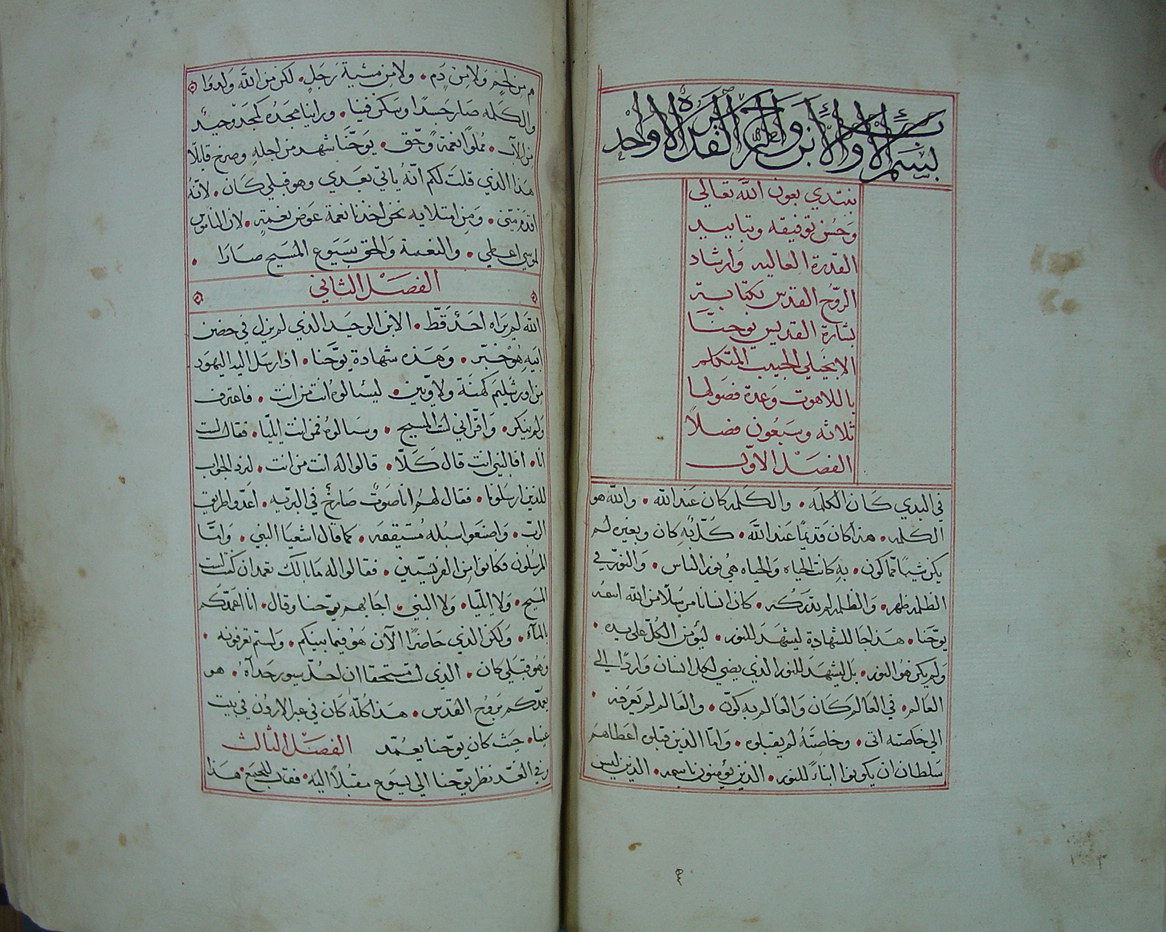 بسم الاب والابن والروح القدس الاله الواحد
نبتدي بعون الله تعالي
وحسن توفيقه وبتاييد
القدرة العاليه وارشاد
الروح القدس بكتابة
بشارة القديس يوحنا
الانجيلي الحبيب المتكلم
باللاهوت وعدة فصولها
ثلاثه وسبعون فصلاً
الفصل الاول
في البدي كان الكلمة • والكلمه كان عند الله • والله هو
الكلمه • هذا كان قديمًا عند الله • كلٌ به كان وبغيره لم
يكن شيئًا مما كون • به كانت الحياه والحياه هي نور الناس • والنور في
الظلمه ظهر • والظلمه لم تدركه • كان انسانًا مرسلًا من الله اسمه
يوحنا • هذا جا للشهادة ليشهد للنور • ليؤمن الكل علي يده •
ولم يكن هو النور • بل ليشهد للنور الذي يضي لكل انسان واردًا الي
العالم • في العالم كان والعالم به كون • والعالم لم يعرفه •
الي خاصته اتي • وخاصته لم تقبله • واما الذين قبلوه اعطاهم
سلطان ان يكونوا ابناءً للنور • الذين يؤمنون باسمه • الذين ليس
٤
هم من لحم ولا من دم • ولا من مشية رجل • لكن من الله ولدوا
والكلمه صار جسدًا وسكن فينا • وراينا مجده كمجد وحيد
من الاب • مملوًا نعمة وحق • يوحنا شهد من اجله وصرخ قايلًا
هذا الذي قلت لكم انه ياتي بعدي وهو قبلي كان • لانه
اقدم مني • ومن امتلايه نحن اخذنا نعمة عوض نعمة • لان الناموس
لموسي اعطي • والنعمة والحق بيسوع المسيح صارا •
الفصل الثاني
الله لم يراه احد قط • الابن الوحيد الذي لم يزل في حضن
ابيه هو خبر • وهذه شهادة يوحنا • اذ ارسل اليه اليهود
من اورشليم كهنة ولاويين • ليسالوه انت من انت • فاعترف
ولم ينكر • واقر اني لست المسيح • وسالوه فمن انت ايليا • فقال لست
انا • افالنبي انت قال كلا • قالوا له انت من انت • لنرد الجواب
للذين ارسلونا • فقال لهم انا صوت صارخ في البريه • اعدوا طريق
الرب • واصنعوا سبله مستقيمه • كما قال اشعيا النبي • واما
المرسلون فكانوا من الفريسيين • فقالوا له ما بالك تعمد ان كنت لست
المسيح • ولا ايليا • ولا النبي • اجابهم يوحنا وقال • انا اعمدكم
بالماء • ولكن الذي حاضرًا الآن هو فيما بينكم • ولستم تعرفونه •
وهو قبلي كان • الذي لست مستحقا ان احل سيور حذآه • هو
يعمدكم بروح القدس • هذا كله كان في عبر الاردن في بيت
عنيا • حيث كان يوحنا يعمد الفصل الثالث
وفي الغد نظر يوحنا الي يسوع مقبلًا اليه • فقال للجمع هذا